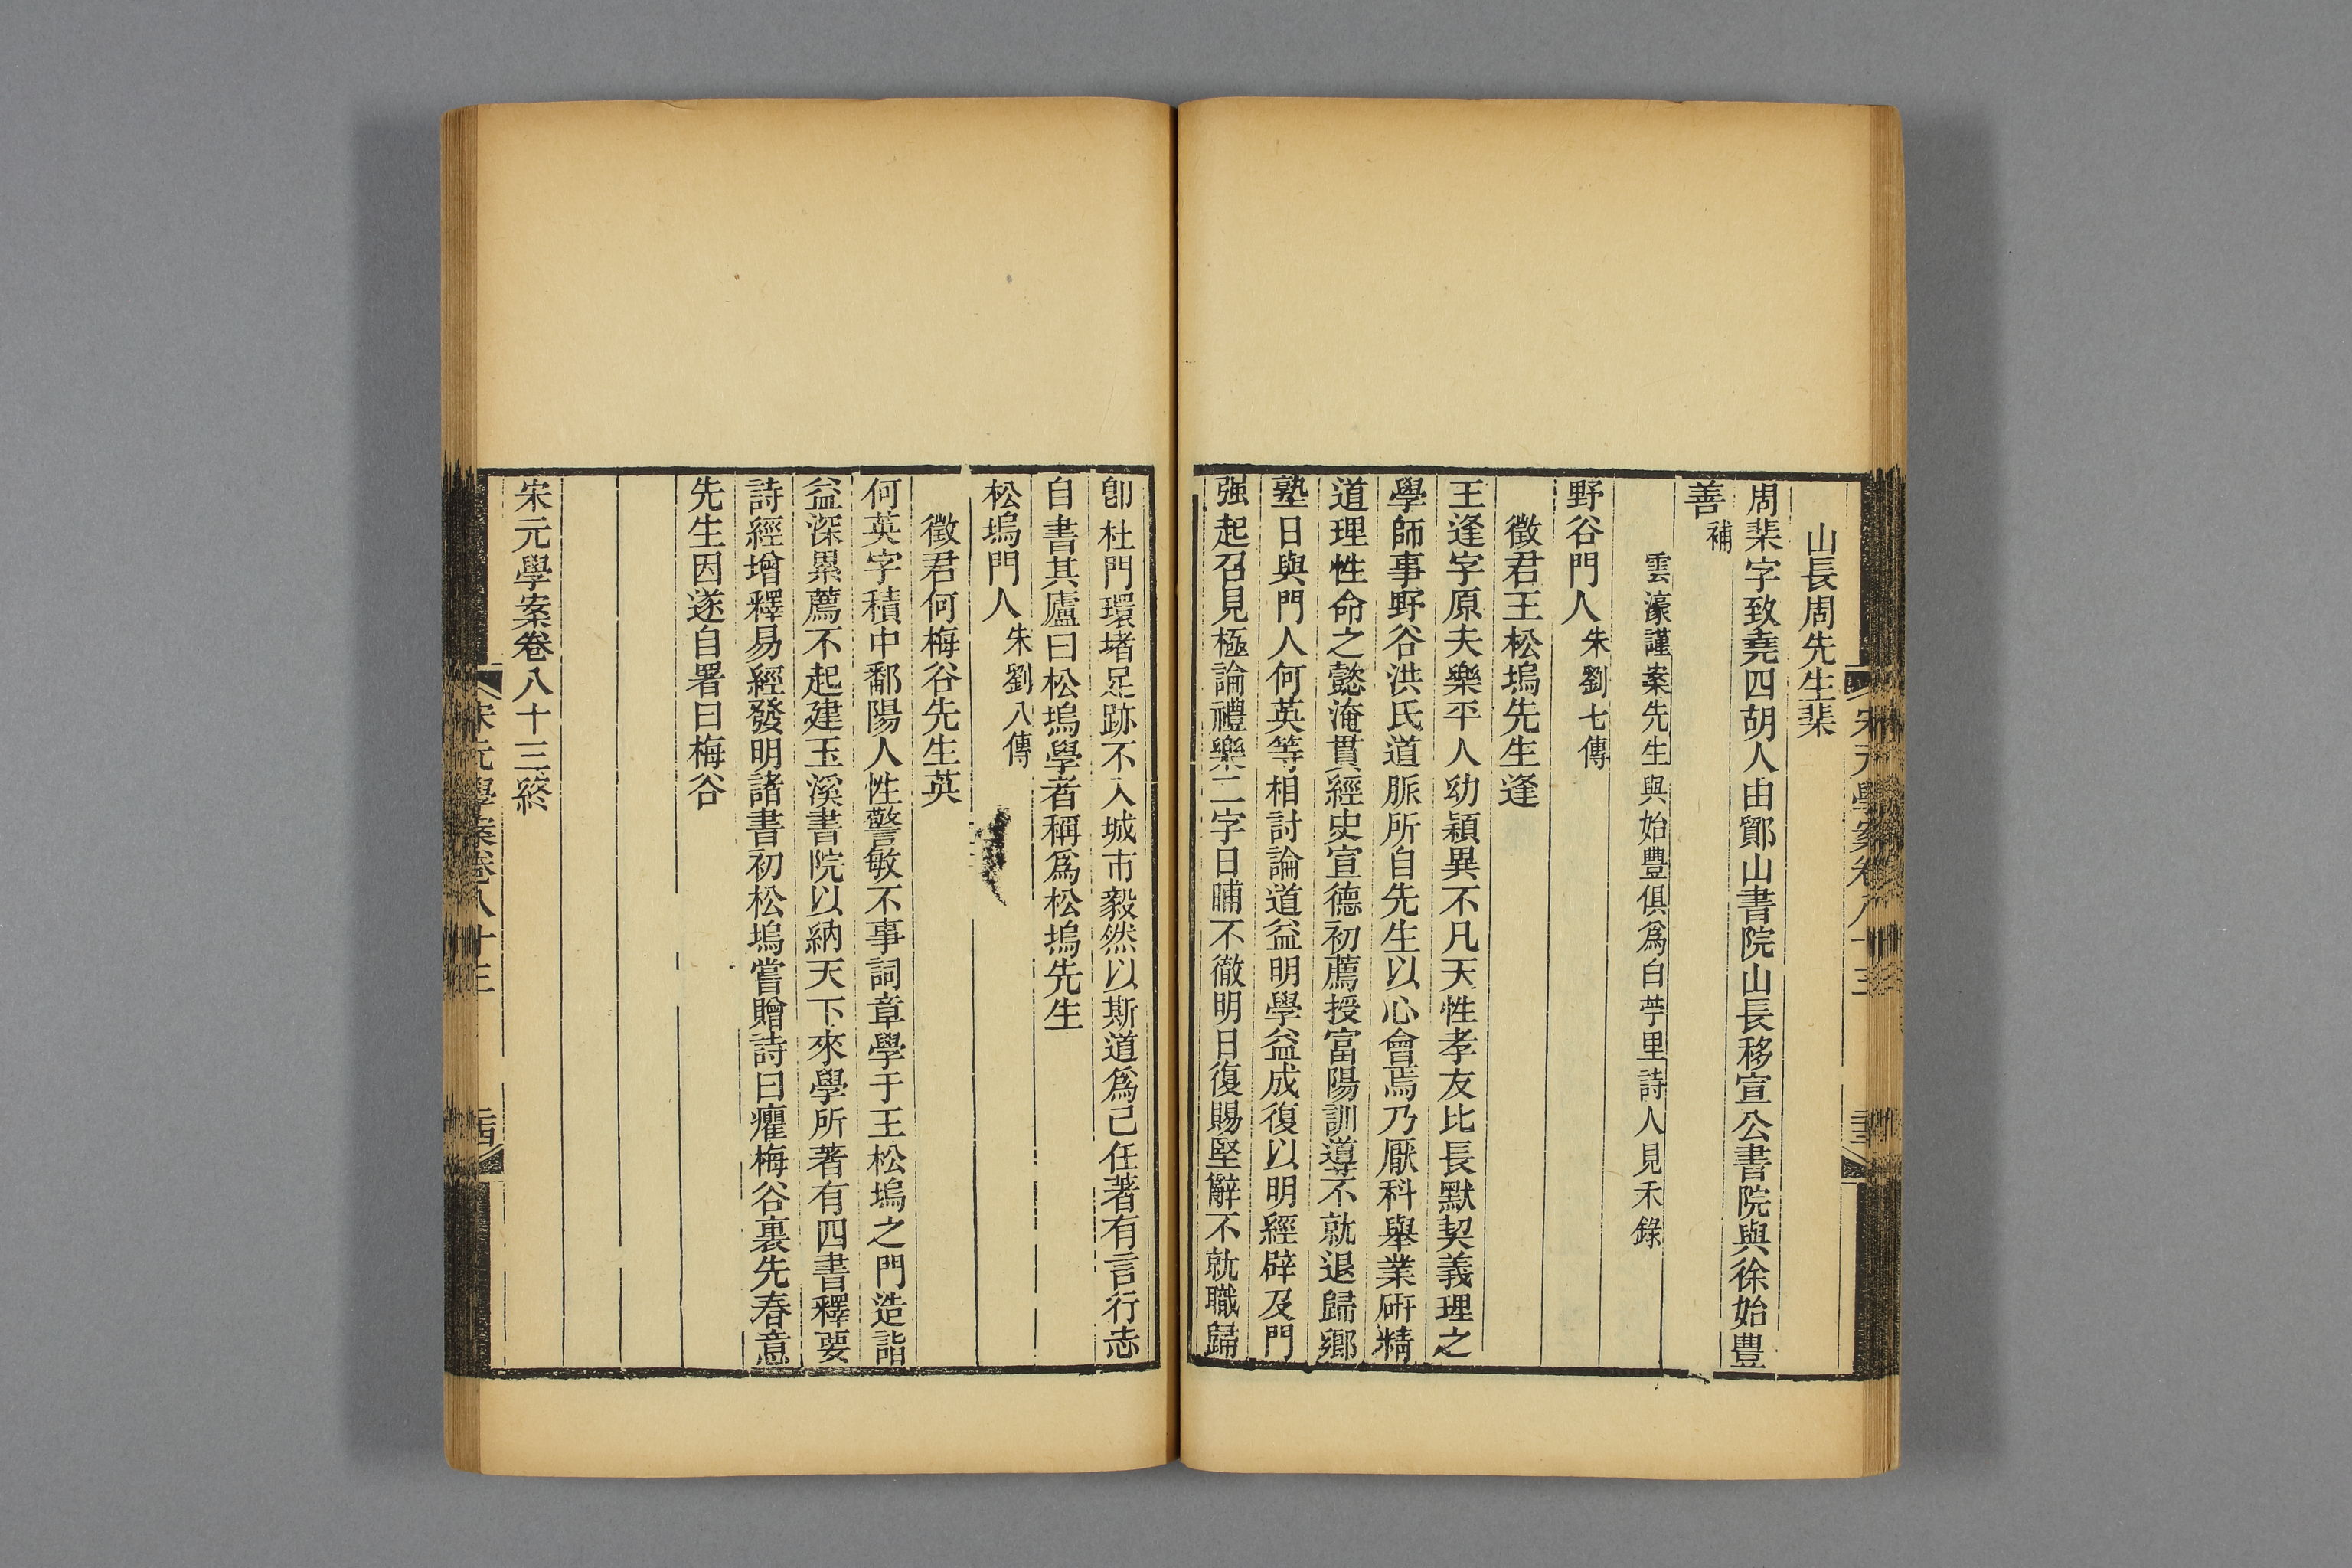 山長周先生棐
周棐字致堯四胡人由鄮山書院山長移宣公書院與徐始豐
善補
雲濠謹案先生與始豐俱爲白苧里詩人見禾錄
野谷門人朱劉七傳
徵君王松塢先生逢
王逢字原夫樂平人幼穎異不凡天性孝友比長默契義理之
學師事野谷洪氏道脈所自先生以心會焉乃厭科舉業硏精
道理性命之懿淹貫經史宣德初薦授富陽訓導不就退歸鄉
塾日與門人何英等相討論道益明學益成復以明經辟及門
强起召見極論禮樂二字日晡不徹明日復賜堅辭不就職歸
卽杜門環堵足跡不入城市毅然以斯道爲己任著有言行志
自書其廬曰松塢學者稱爲松塢先生
松塢門人朱劉八傳
徵君何梅谷先生英
何英字積中鄱陽人性警敏不事詞章學于王松塢之門造詣
益深累薦不起建玉溪書院以納天下來學所著有四書釋要
詩經增釋易經發明諸書初松塢嘗贈詩曰癯梅谷裏先春意
先生因遂自署曰梅谷
宋元學案卷八十三終
宋元學案卷八十三